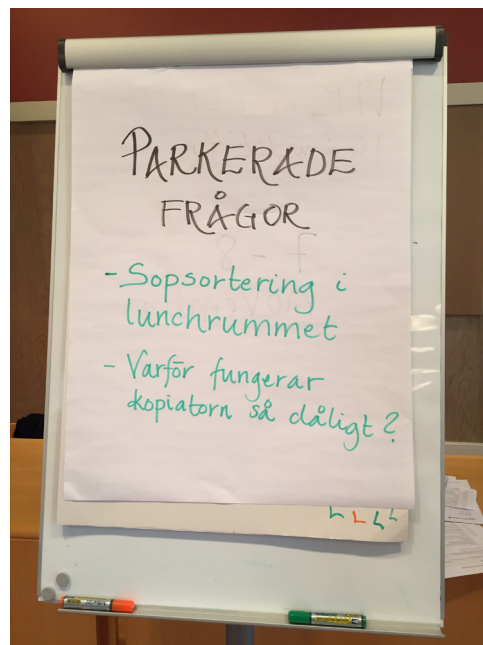 PARKERADE
FRÅGOR
- Sopsortering i
lunchrummet
- Varför fungerar
kopiatorn så dåligt?